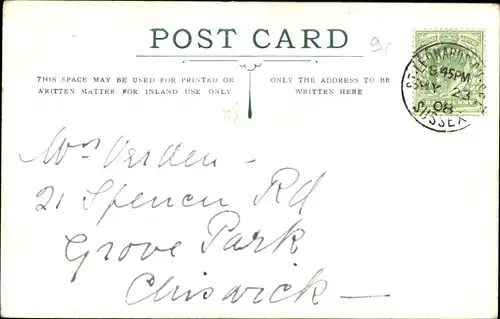 POST CARD
9.
THIS SPACE MAY BE USED FOR PRINTED OR
WRITTEN MATTER FOR INLAND USE ONLY
ONLY THE ADDRESS TO BE
WRITTEN HERE
45PM
08
SUSSEX
Mrs Verden
21 Spencer Rd
Grove Park
Chiswick